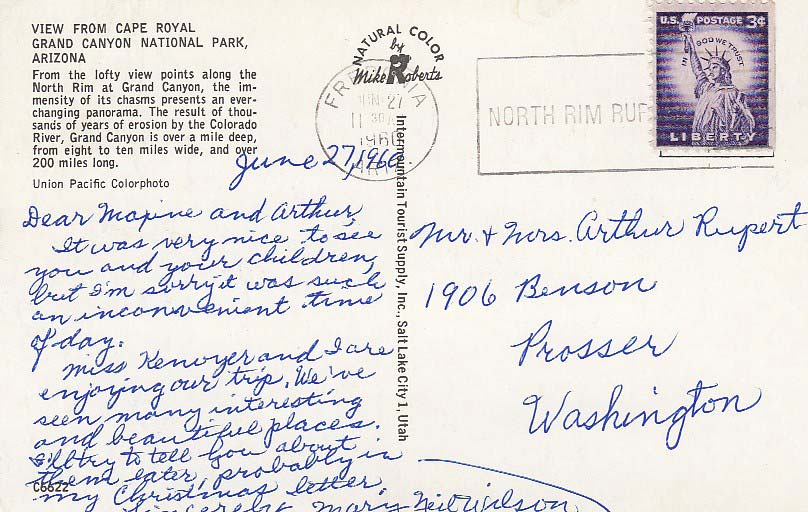 VIEW FROM CAPE ROYAL
GRAND CANYON NATIONAL PARK,
ARIZONA
From the lofty view points along the
North Rim at Grand Canyon, the im-
mensity of its chasms presents an ever-
changing panorama. The result of thou-
sands of years of erosion by the Colorado
River, Grand Canyon is over a mile deep,
from eight to ten miles wide, and over
200 miles long.
Union Pacific Colorphoto
NATURAL COLOR
by
Mike Roberts
FREDONIA
JUN 27
11 30 A
1960
ARIZ.
NORTH RIM RUR
U.S. POSTAGE 3¢
IN GOD WE TRUST
LIBERTY
Intermountain Tourist Supply, Inc., Salt Lake City 1, Utah
June 27, 1960.
Dear Maxine and Arthur,
It was very nice to see
you and your children,
but I'm sorry it was such
an inconvenient time
of day.
Miss Kenoyer and I are
enjoying our trip. We've
seen many interesting
and beautiful places.
I'll try to tell you about
them later, probably in
my Christmas letter.
Sincerely, Mary Neil Wilson
C6622
Mr. + Mrs. Arthur Rupert
1906 Benson
Prosser
Washington